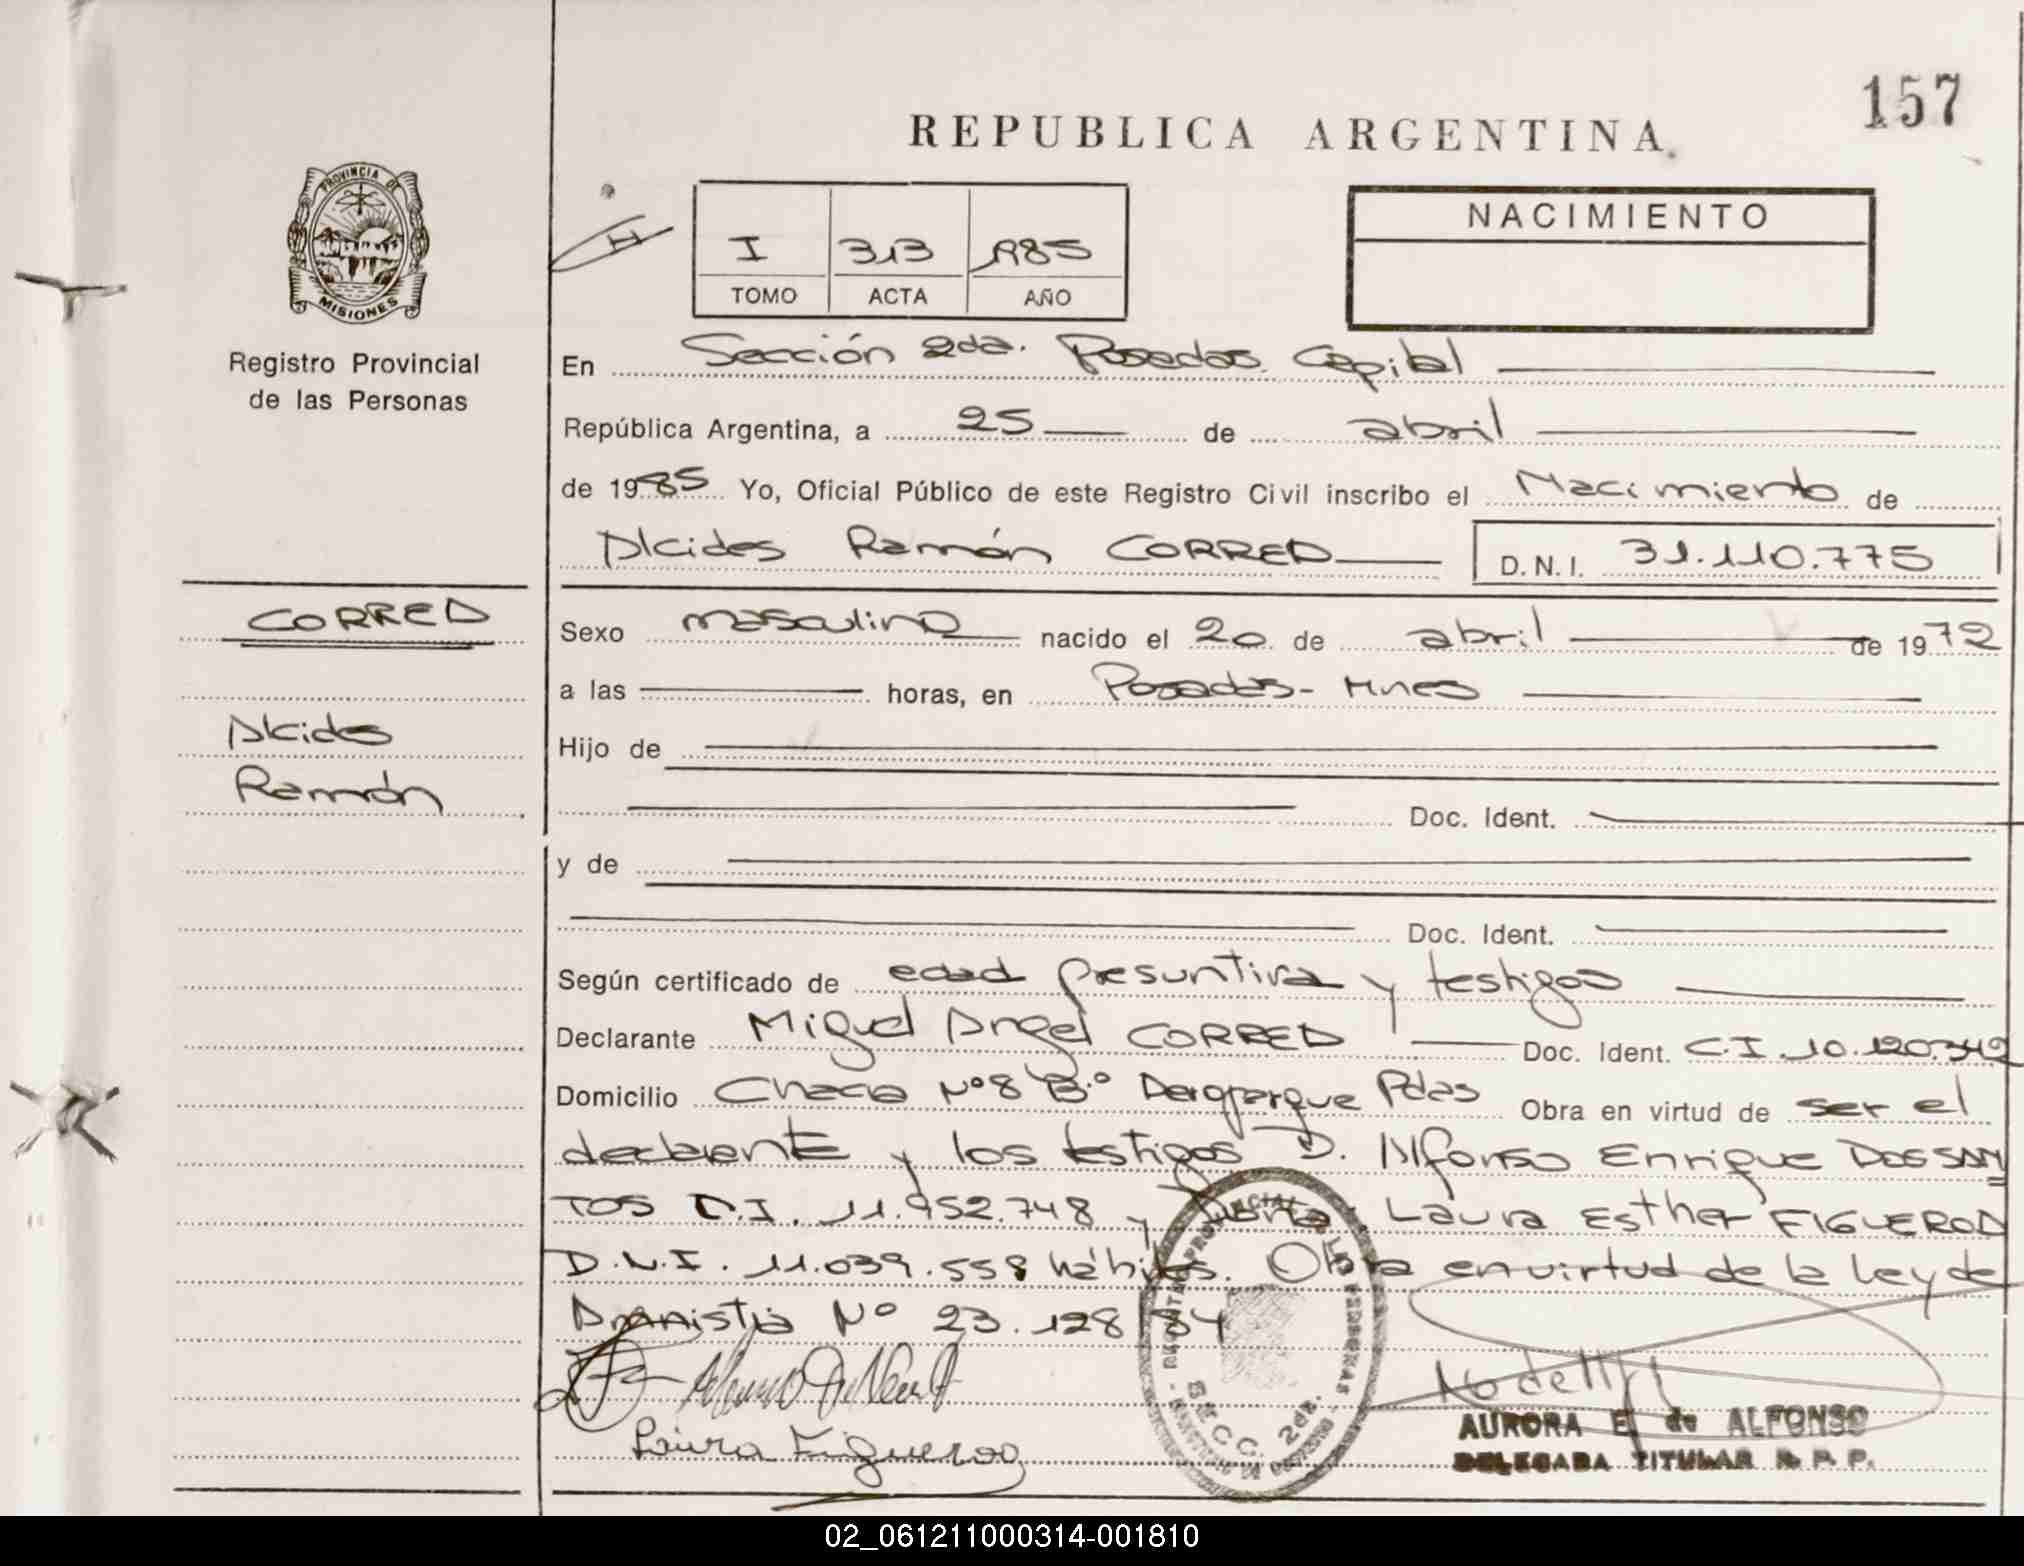 157
REPUBLICA ARGENTINA.
PROVINCIA DE
MISIONES
Registro Provincial
de las Personas
I 313 1985
TOMO ACTA AÑO
NACIMIENTO
En Sección 2da. Posadas Capital
República Argentina, a 25 de abril
de 1985 Yo, Oficial Público de este Registro Civil inscribo el Nacimiento de
Alcides Ramón CORREA D.N.I. 31.110.775
CORREA
Alcides
Ramón
Sexo masculino nacido el 20 de abril de 1972
a las horas, en Posadas - Mnes
Hijo de
Doc. Ident.
y de
Doc. Ident.
Según certificado de edad presuntiva y testigos
Declarante Miguel Angel CORREA Doc. Ident. C.I. 10.120.342
Domicilio Chacra Nº 8 Bº Pdas Obra en virtud de ser el
declarante y los testigos D. Alfonso Enrique DOS SAN
TOS D.I. 11.952.748 y Doña Laura Esther FIGUEROA
D.N.I. 11.039.558 hábiles. Obra en virtud de la ley de
Amnistia Nº 23.128/84
Laura Figueroa
SECC. 2da.
AURORA E. de ALFONSO
DELEGADA TITULAR R.P.P.
02_061211000314-001810